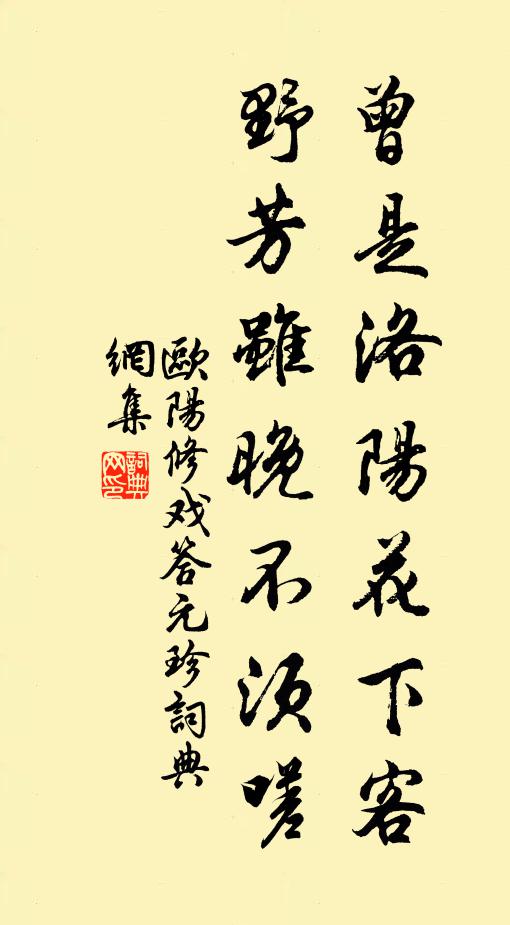 曾是洛陽花下客
野芳雖晚不須嗟
歐陽修戏答元珍詞典
網集
詞典
网印